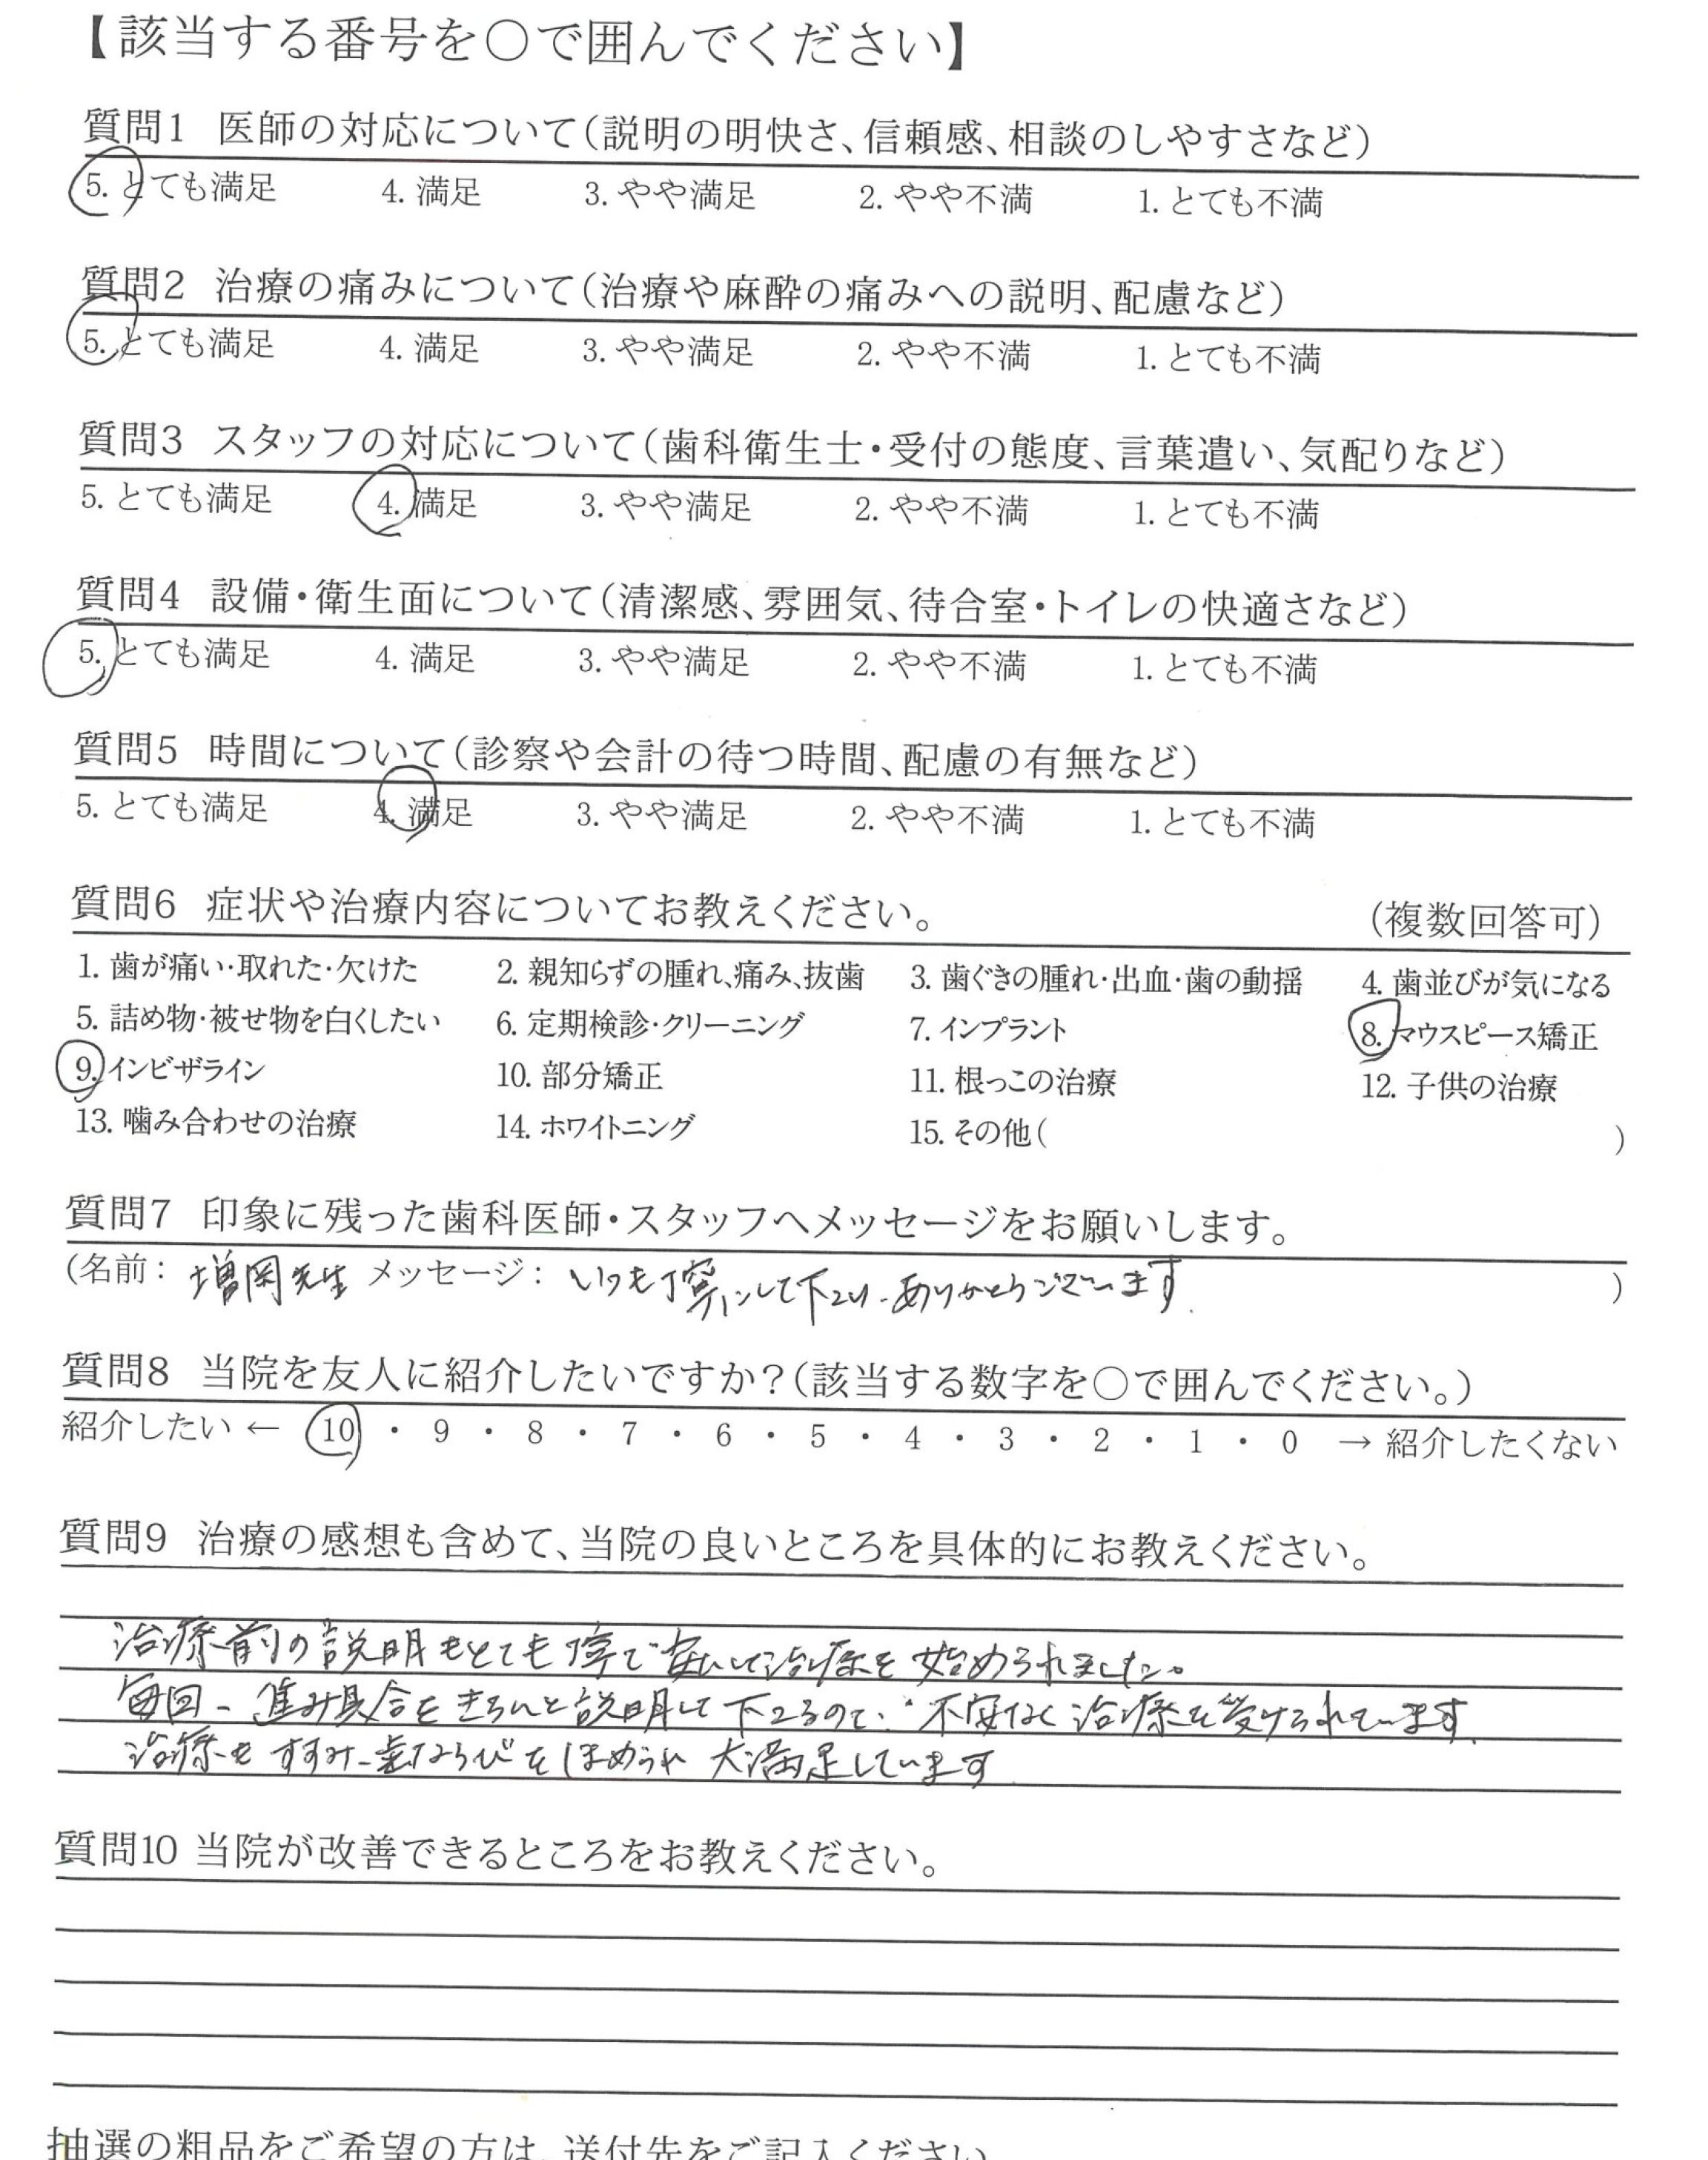 【該当する番号を○で囲んでください】
質問1 医師の対応について(説明の明快さ、信頼感、相談のしやすさなど)
5. とても満足 4. 満足 3. やや満足 2. やや不満 1. とても不満
質問2 治療の痛みについて(治療や麻酔の痛みへの説明、配慮など)
5. とても満足 4. 満足 3. やや満足 2. やや不満 1. とても不満
質問3 スタッフの対応について(歯科衛生士・受付の態度、言葉遣い、気配りなど)
5. とても満足 4. 満足 3. やや満足 2. やや不満 1. とても不満
質問4 設備・衛生面について(清潔感、雰囲気、待合室・トイレの快適さなど)
5. とても満足 4. 満足 3. やや満足 2. やや不満 1. とても不満
質問5 時間について(診察や会計の待つ時間、配慮の有無など)
5. とても満足 4. 満足 3. やや満足 2. やや不満 1. とても不満
質問6 症状や治療内容についてお教えください。 (複数回答可)
1. 歯が痛い・取れた・欠けた 2. 親知らずの腫れ、痛み、抜歯 3. 歯ぐきの腫れ・出血・歯の動揺 4. 歯並びが気になる
5. 詰め物・被せ物を白くしたい 6. 定期検診・クリーニング 7. インプラント 8. マウスピース矯正
9. インビザライン 10. 部分矯正 11. 根っこの治療 12. 子供の治療
13. 噛み合わせの治療 14. ホワイトニング 15. その他( )
質問7 印象に残った歯科医師・スタッフへメッセージをお願いします。
(名前: 増岡先生 メッセージ: いつも丁寧にして下さり、ありがとうございます。 )
質問8 当院を友人に紹介したいですか?(該当する数字を○で囲んでください。)
紹介したい ← 10 ・ 9 ・ 8 ・ 7 ・ 6 ・ 5 ・ 4 ・ 3 ・ 2 ・ 1 ・ 0 → 紹介したくない
質問9 治療の感想も含めて、当院の良いところを具体的にお教えください。
治療前の説明もとても丁寧で安心して治療を始められました。
毎回、進み具合をきちんと説明して下さるので、不安なく治療を受けられています。
治療もすすみ、歯ならびをほめられ 大満足しています
質問10 当院が改善できるところをお教えください。
抽選の粗品をご希望の方は、送付先をご記入ください